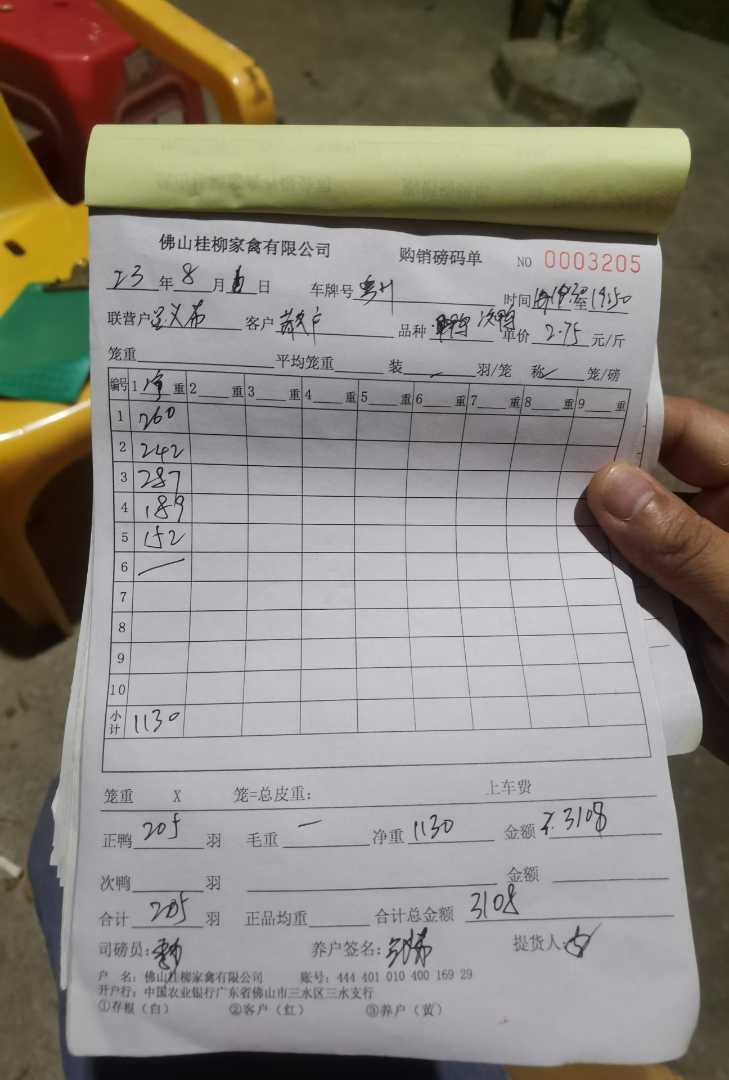 佛山桂柳家禽有限公司 购销磅码单 NO 0003205
23 年 8 月 日 车牌号 时间 至 19:50
联营户 客户 散户 品种 次鸭 单价 2.75 元/斤
笼重 平均笼重 装 羽/笼 称 笼/磅
编号 1 净 重 2 重 3 重 4 重 5 重 6 重 7 重 8 重 9 重
1 260
2 242
3 287
4 189
5 152
6 —
7
8
9
10
小计 1130
笼重 X 笼=总皮重: 上车费
正鸭 205 羽 毛重 — 净重 1130 金额 3108
次鸭 羽 金额
合计 205 羽 正品均重 合计总金额 3108
司磅员: 养户签名: 提货人:
户 名: 佛山桂柳家禽有限公司 账号: 444 401 010 400 169 29
开户行: 中国农业银行广东省佛山市三水区三水支行
①存根（白） ②客户（红） ③养户（黄）